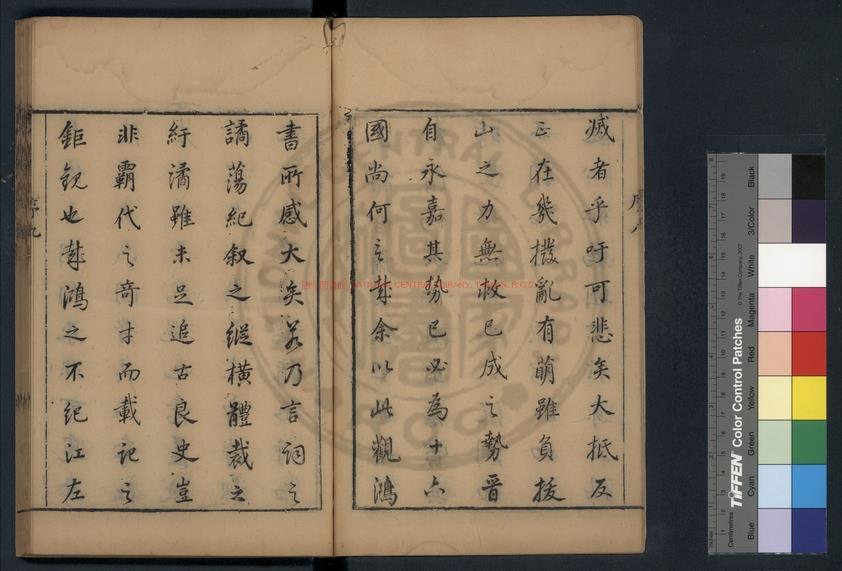 滅者乎吁可悲矣大抵反
正在幾撥亂有萌雖負拔
山之力無救已成之勢晉
自永嘉其勢已必為十六
國尚何言哉余以此觀鴻
書所感大矣若乃言詞之
譎蕩紀叙之縱橫體裁之
紆潏雖未足追古良史豈
非霸代之奇才而載記之
鉅觀也哉鴻之不紀江左
序九
NATIONAL CENTRAL LIBRARY, TAIWAN, R.O.C
TIFFEN Color Control Patches
© The Tiffen Company, 2007
Centimetres
Inches
Blue
Cyan
Green
Yellow
Red
Magenta
White
3/Color
Black